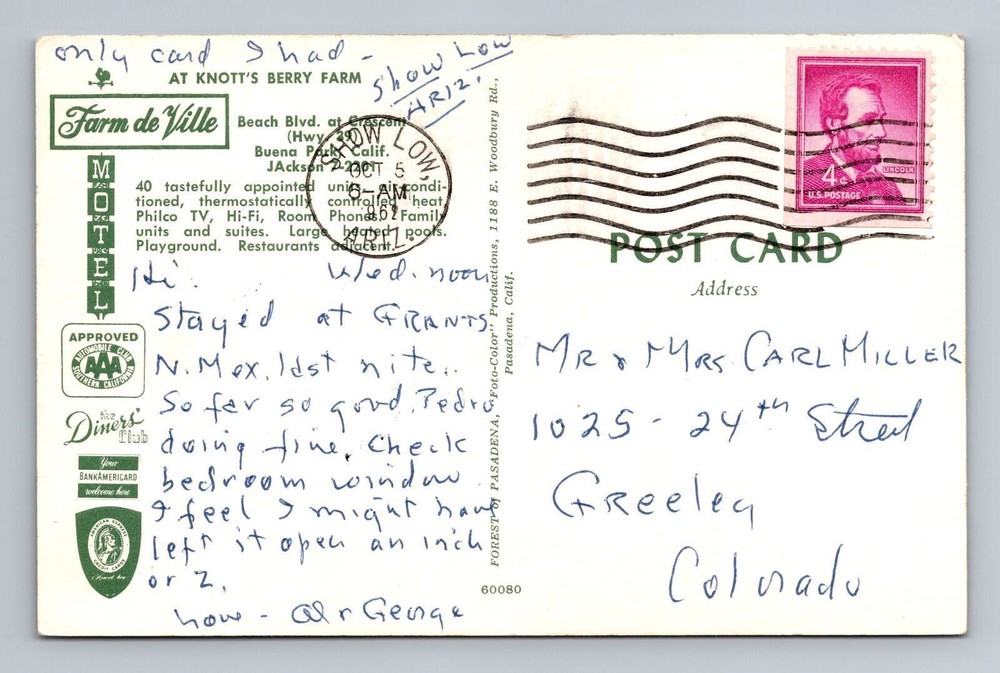 only card I had -
Show Low
ARIZ.
AT KNOTT'S BERRY FARM
Farm de Ville
MOTEL
Beach Blvd. at Crescent
(Hwy. 39)
Buena Park, Calif.
JAckson
40 tastefully appointed units, air-condi-
tioned, thermostatically controlled heat,
Philco TV, Hi-Fi, Room Phones. Family
units and suites. Large heated pools.
Playground. Restaurants adjacent.
SHOW LOW,
OCT 5
6-AM
1962
ARIZ.
APPROVED
AUTOMOBILE CLUB
AAA
SOUTHERN CALIFORNIA
the
Diners'
Club
Your
BANKAMERICARD
welcome here
AMERICAN EXPRESS
CREDIT CARDS
Hi. Wed. noon
Stayed at GRANTS
N. Mex. last nite.
So far so good. Pedro
doing fine. Check
bedroom window
I feel I might have
left it open an inch
or 2.
George
FOREST of PASADENA, "Foto-Color" Productions, 1188 E. Woodbury Rd.,
Pasadena, Calif.
60080
4¢
LINCOLN
U.S. POSTAGE
POST CARD
Address
MR & MRS. CARL MILLER
1025 - 24th Street
Greeley
Colorado